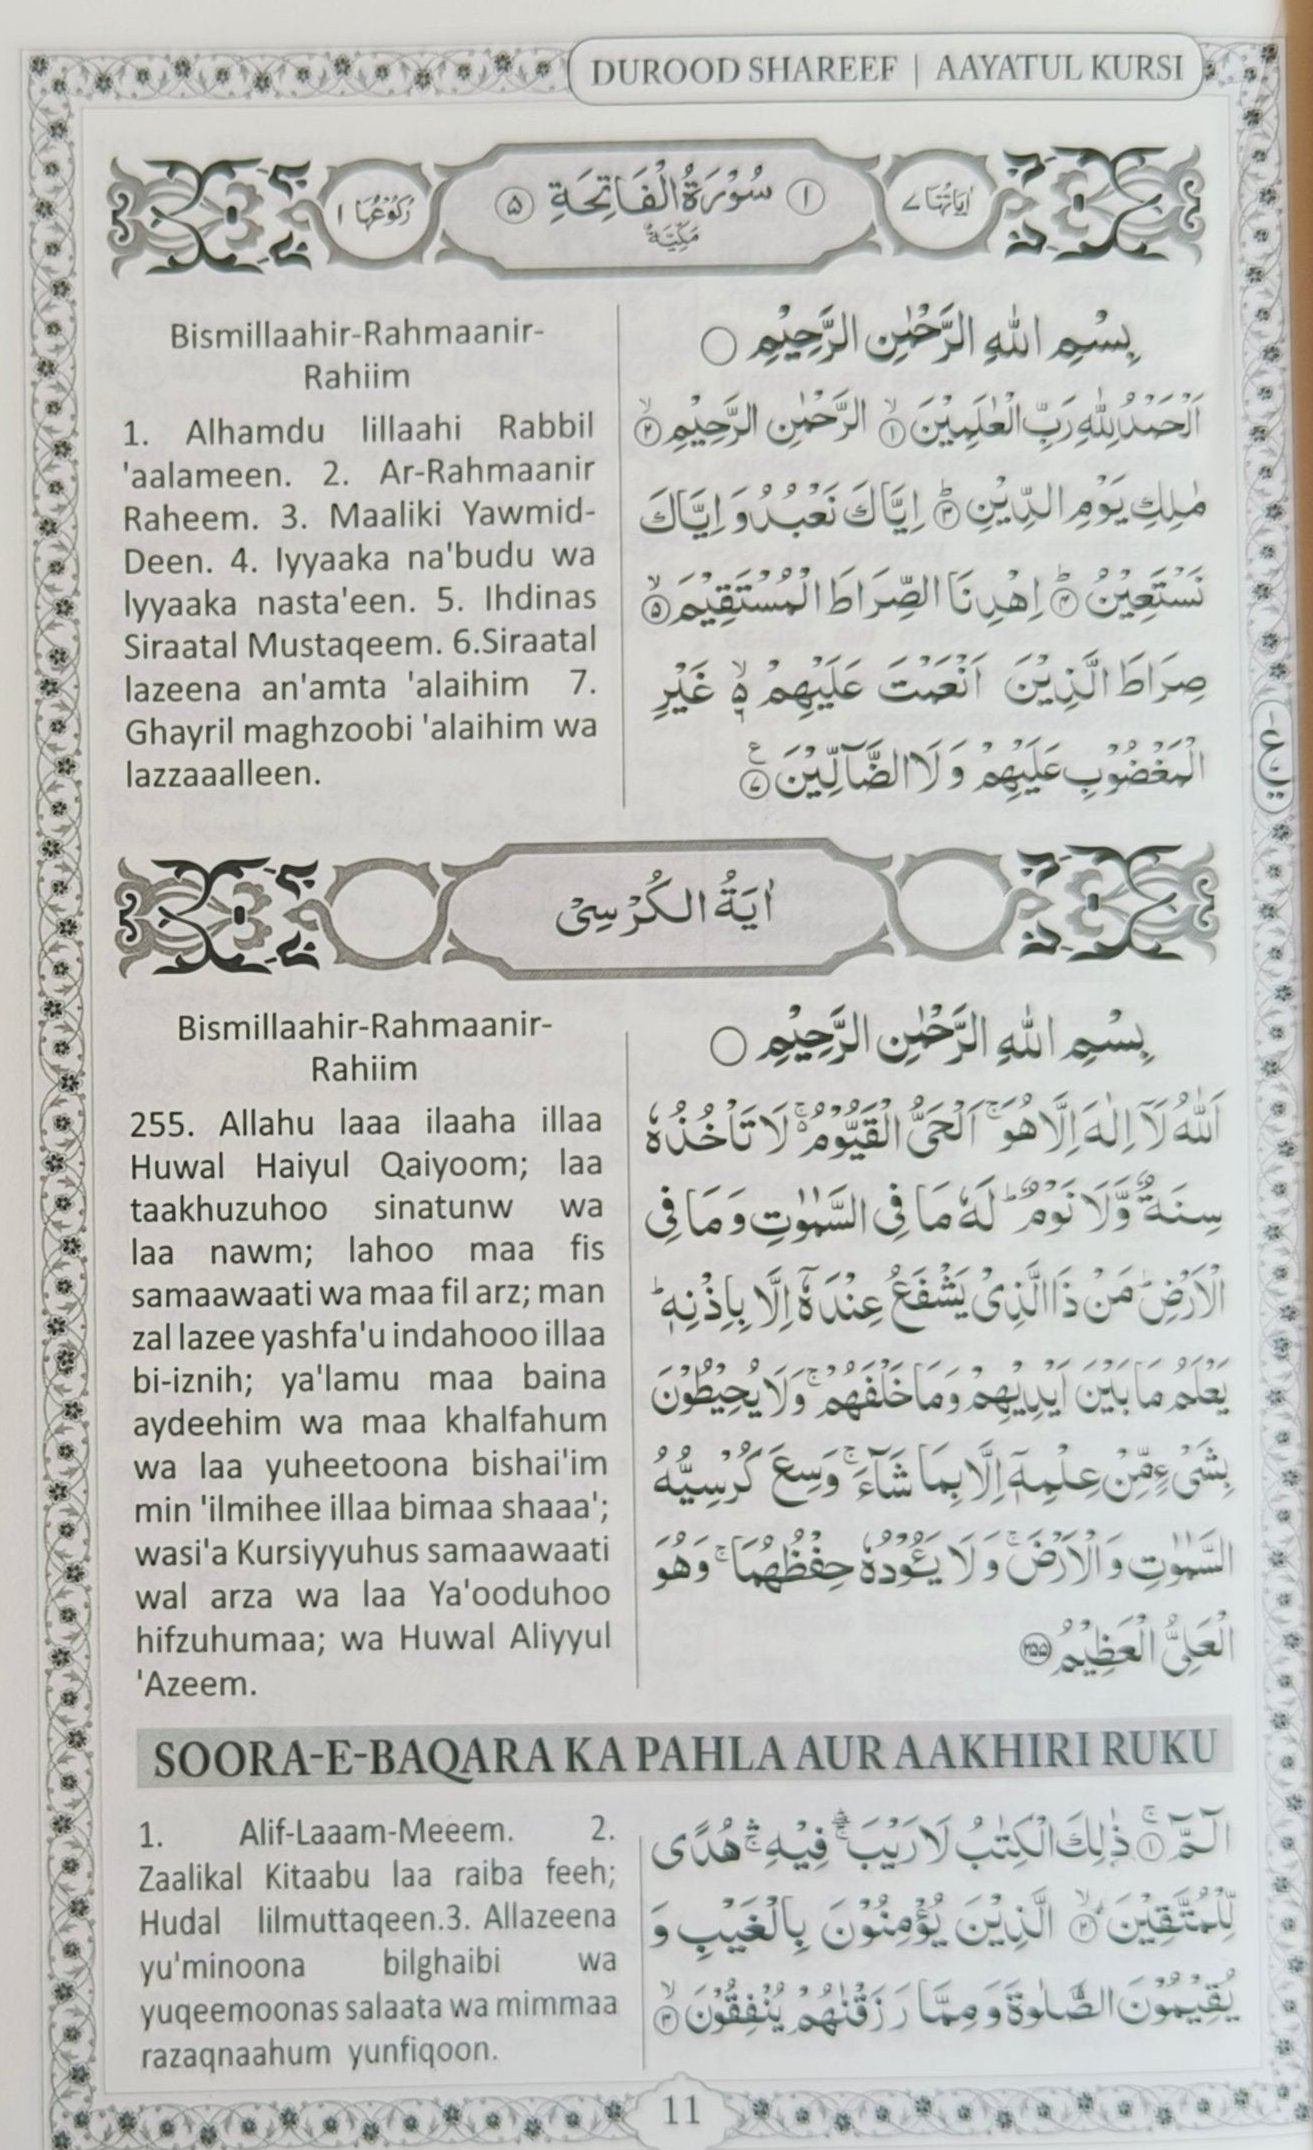 DUROOD SHAREEF | AAYATUL KURSI
اٰيَاتُهَا ٧
١ سُوْرَةُ الْفَاتِحَةِ ٥
مَكِّيَّةٌ
رُكُوْعُهَا ١
Bismillaahir-Rahmaanir-
Rahiim
1. Alhamdu lillaahi Rabbil
'aalameen. 2. Ar-Rahmaanir
Raheem. 3. Maaliki Yawmid-
Deen. 4. Iyyaaka na'budu wa
Iyyaaka nasta'een. 5. Ihdinas
Siraatal Mustaqeem. 6.Siraatal
lazeena an'amta 'alaihim 7.
Ghayril maghzoobi 'alaihim wa
lazzaaalleen.
بِسْمِ اللّٰهِ الرَّحْمٰنِ الرَّحِيْمِ ○
اَلْحَمْدُ لِلّٰهِ رَبِّ الْعٰلَمِيْنَ ۙ‏﴿۱﴾ الرَّحْمٰنِ الرَّحِيْمِ ۙ‏﴿۲﴾
مٰلِكِ يَوْمِ الدِّيْنِ ؕ‏﴿۳﴾ اِيَّاكَ نَعْبُدُ وَ اِيَّاكَ
نَسْتَعِيْنُ ؕ‏﴿۴﴾ اِهْدِنَا الصِّرَاطَ الْمُسْتَقِيْمَ ۙ‏﴿۵﴾
صِرَاطَ الَّذِيْنَ اَنْعَمْتَ عَلَيْهِمْ ۙ۬ۦ غَيْرِ
الْمَغْضُوْبِ عَلَيْهِمْ وَ لَا الضَّآلِّيْنَ ﴿۷﴾
ع
اٰيَةُ الْكُرْسِيْ
Bismillaahir-Rahmaanir-
Rahiim
255. Allahu laaa ilaaha illaa
Huwal Haiyul Qaiyoom; laa
taakhuzuhoo sinatunw wa
laa nawm; lahoo maa fis
samaawaati wa maa fil arz; man
zal lazee yashfa'u indahooo illaa
bi-iznih; ya'lamu maa baina
aydeehim wa maa khalfahum
wa laa yuheetoona bishai'im
min 'ilmihee illaa bimaa shaaa';
wasi'a Kursiyyuhus samaawaati
wal arza wa laa Ya'ooduhoo
hifzuhumaa; wa Huwal Aliyyul
'Azeem.
بِسْمِ اللّٰهِ الرَّحْمٰنِ الرَّحِيْمِ ○
اَللّٰهُ لَاۤ اِلٰهَ اِلَّا هُوَ ۚ اَلْحَيُّ الْقَيُّوْمُ ۚ۬ لَا تَاْخُذُهٗ
سِنَةٌ وَّ لَا نَوْمٌ ؕ لَهٗ مَا فِي السَّمٰوٰتِ وَ مَا فِي
الْاَرْضِ ؕ مَنْ ذَا الَّذِيْ يَشْفَعُ عِنْدَهٗۤ اِلَّا بِاِذْنِهٖ ؕ
يَعْلَمُ مَا بَيْنَ اَيْدِيْهِمْ وَ مَا خَلْفَهُمْ ۚ وَ لَا يُحِيْطُوْنَ
بِشَيْءٍ مِّنْ عِلْمِهٖۤ اِلَّا بِمَا شَآءَ ۚ وَسِعَ كُرْسِيُّهُ
السَّمٰوٰتِ وَ الْاَرْضَ ۚ وَ لَا يَـُٔوْدُهٗ حِفْظُهُمَا ۚ وَ هُوَ
الْعَلِيُّ الْعَظِيْمُ ﴿۲۵۵﴾
SOORA-E-BAQARA KA PAHLA AUR AAKHIRI RUKU
1. Alif-Laaam-Meeem. 2.
Zaalikal Kitaabu laa raiba feeh;
Hudal lilmuttaqeen.3. Allazeena
yu'minoona bilghaibi wa
yuqeemoonas salaata wa mimmaa
razaqnaahum yunfiqoon.
الٓمّٓ ۚ‏﴿۱﴾ ذٰلِكَ الْكِتٰبُ لَا رَيْبَ ۛۚ فِيْهِ ۛۚ هُدًى
لِّلْمُتَّقِيْنَ ۙ‏﴿۲﴾ الَّذِيْنَ يُؤْمِنُوْنَ بِالْغَيْبِ وَ
يُقِيْمُوْنَ الصَّلٰوةَ وَ مِمَّا رَزَقْنٰهُمْ يُنْفِقُوْنَ ۙ‏﴿۳﴾
11